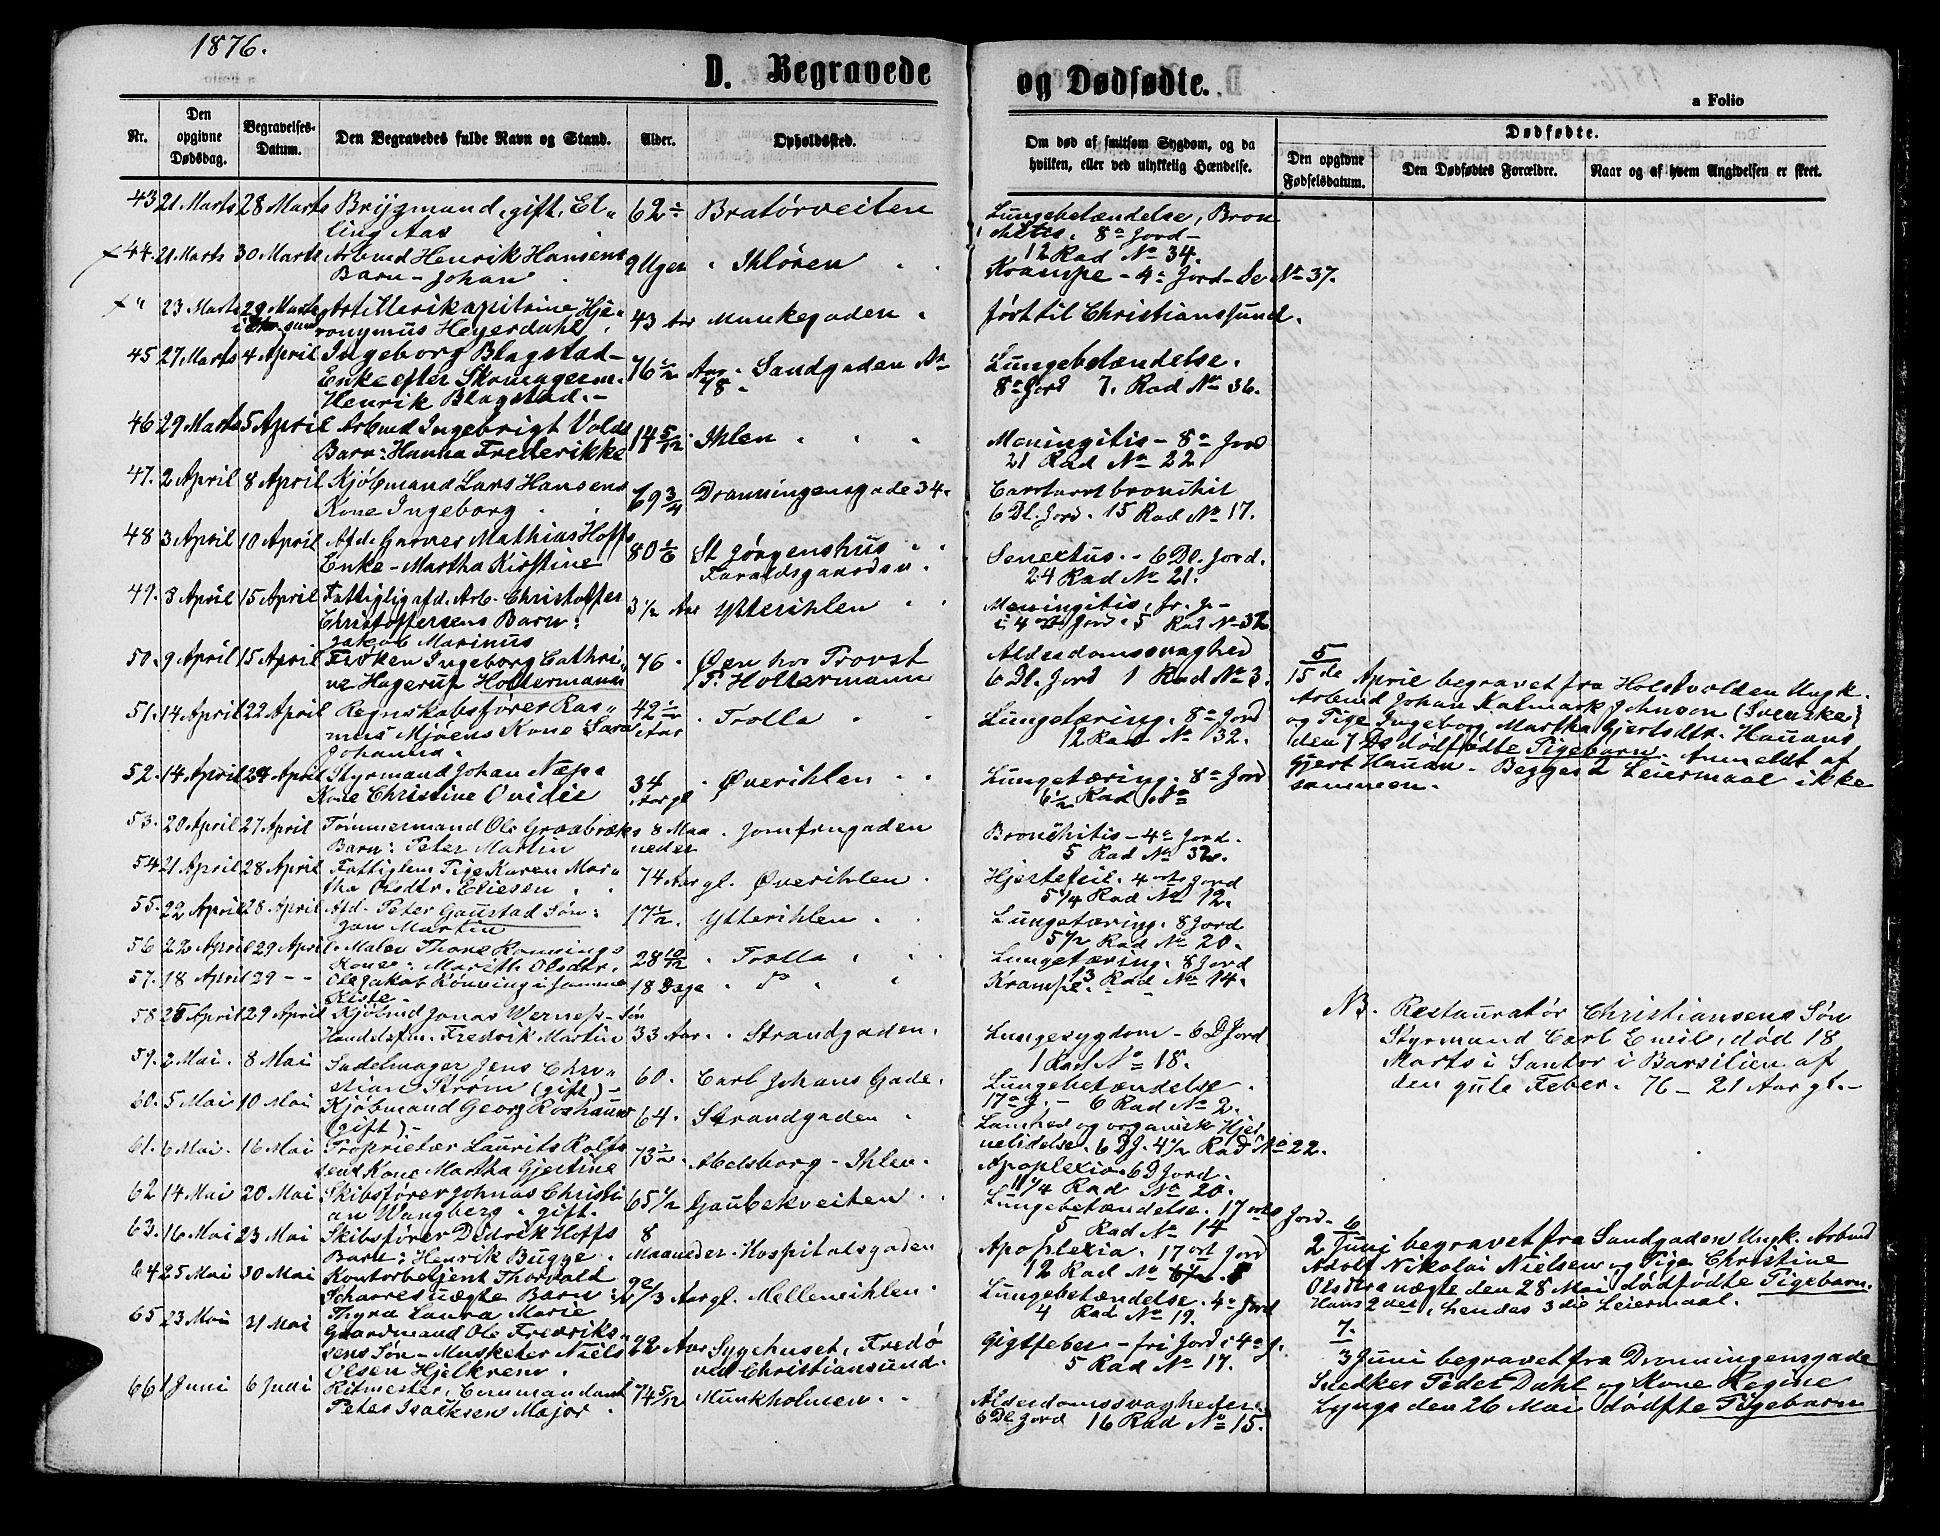 1876.
D. Begravede
og Dødfødte.
a Folio
Nr.
Den opgivne Dødsdag.
Begravelses-Datum.
Den Begravedes fulde Navn og Stand.
Alder.
Opholdssted.
Om død af smitsom Sygdom, og da hvilken, eller ved ulykkelig Hændelse.
Dødfødte.
Den opgivne Fødselsdatum.
Den Dødfødtes Forældre.
Naar og af hvem Angivelsen er skeet.
43 21 Marts 28 Marts Brygmand, gift, El„ 62 Bratørveiten Lungebetændelse, Bron
ling Aas 8de Jord -
12 Rad No 34.
44. 21 Marts 30 Marts Arbmd Henrik Hansens 9 Uger Ihløren
Barn - Johan Krampe - 4de Jord - No 37.
" 23 Marts 29 Marts Artillerikapitaine Hje„ 43 Aar Munkegaden ført til Christianssund.
ronymus Heyerdahl
45 27 Marts 4 April Ingeborg Blagstad- 76 1/2 Aar. Sandgaden No Lungebetændelse.
Enke efter Skomagerm. 78. 8de Jord 7. Rad No 36.
Henrik Blagstad. -
46 29 Marts 5 April Arbmd Ingebrigt Volds 14 5/12 Ihlen Meningitis - 8de Jord
Barn: Hanna Frederikke 21 Rad No 22.
47. 2 April 8 April Kjøbmand Lars Hansens 69 3/4 Dronningensgade 34.
Kone Ingeborg 6 Dl. Jord. 15 Rad No 17.
48 3 April 10 April Afd. Garver Mathias Hoffs 80 1/6 St Jørgenshus Senectus. - 6 Dl. Jord.
Enke - Martha Kirstine 24 Rad No 21.
49. 8 April 15 April Fattiglig afd. Arb. Christoffer 3 1/2 Aar Ytterihlen Meningitis, fr. J. -
Christoffersens Barn: i 4 Jord. 5 Rad No 37
Jakob Marinus
50. 9 April 15 April Frøken Ingeborg Cathri„ 76. Øen hos Provst Alderdomssvaghed
ne Hagerup Holtermann P. Holtermann 6 Dl. Jord 1 Rad No 3.
51. 14 April 22 April Regnskabsfører Ras„ 42 1/2 Aar Trolla Lungetæring. 8de Jord
mus Mjøens Kone Sara 12 Rad No 32.
Johanna.
52. 14 April 24 April Styrmand Johan Næss 34 Aar gl. Øverihlen Lungetæring. 8de Jord
Kone Christine Ovidie 6 1/2 Rad
53. 20 April 27 April Tømmermand Ole Graabræks 8 Maa Jomfrugaden Bronchitis - 4de Jord.
Barn: Peter Martin neder 5 Rad No
54 21 April 28 April Fattiglem Pige Karen Mar„ 74 Aar gl. Øverihlen. Hjertefeil. 4de Jord
tha Olsdtr. Eliesen 5 1/4 Rad No 12.
55. 22 April 28 April Afd. Peter Gaustad Søn: 17 1/2. Ytterihlen Lungetæring. 8 Jord
Jan Martin 5 1/2 Rad No 20.
56 22 April 29 April Maler Thore Rønnings 28 10/12 Trolla Lungetæring. 8 Jord
Kone: Marith Olsdtr. 13 Rad No 14.
57. 18 April 29 - - Ole Jakob Rønning i samme 18 Dage Do Krampe.
Kiste -
58 25 April 29 April Kjøbmd Jonas Werners Søn 33 Aar. Strandgaden. Lungesygdom - 6 D Jord
Handelsfm. Fredrik Martin 1 Rad No 18.
59. 2 Mai. 8 Mai Sadelmager Jens Chri„ 60. Carl Johans Gade. Lungebetændelse
stian Strøm (gift) - 17de J. - 6 Rad No 2.
60. 5 Mai 10 Mai Kjøbmand Georg Roshauw 64. Strandgaden Lamhed og organisk Hjer„
(gift) - nelidelse. 6 DJ. 4 1/2 Rad No 22.
61. 6 Mai. 16 Mai Proprietær Laurits Rolfs 73 1/2. Abelsborg - Ihlen. Apoplexia. 6 D Jord.
sens Kone Martha Gjertine 11 1/4 Rad No 20.
62 14 Mai 20 Mai Skibsfører Johnas Christi 65 1/2 Gaubekveiten Lungebetændelse. 17de Jord.
an Wangberg, gift. 5 Rad No 14
63. 16 Mai 23 Mai Skibsfører Didrik Hoffs 8 Maaneder. Hospitalsgaden Apoplexia. 17de Jord
Barn: Henrik Bugge. 12 Rad No 8
64 25 Mai 30 Mai Kontorbetjent Thorvald Aar gl. Mellemihlen. Lungebetændelse. 4de Jord
Scharres uægte Barn: 4 Rad No 19.
Thyra Laura Marie
65 23 Mai 31 Mai Gaardmand Ole Fredriks„ 22 Aar Sygehuset, Fredø Gigtfeber - fri Jord i 4de J.
sens Søn - Musketer Niels ved Christiansund. 5 Rad No 17.
Olsen Hjelkrem.
66 1 Juni 6 Juni Ritmester, Commandant 74 5/12 Munkholmen Alderdomssvagheder.
Peter Isacksen Major 6 Dl. Jord 16 Rad No 15.
5
15de April begravet fra Holstvolden Ungk.
Arbmd Johan Kalmark Johnson (Svenske)
og Pige Ingeborg Martha Gjertsdtr. Hauans
den 7 Ds dødfødte Pigebarn. Anmeldt af
Gjert Hauan - Begges 2 Leiermaal ikke
sammen.
NB. Restauratør Christiansens Søn
Styrmand Carl Emil, død 18
Marts i Santos i Barsilien af
den gule Feber. 76 - 21 Aar gl. -
6
2 Juni begravet fra Sandgaden Ungk. Arbmd
Adolf Nikolai Nielsen og Pige Christine
Olsdtr uægte den 28 Mai dødfødte Pigebarn.
Hans 2det, hendes 3die Leiermaal.
7.
3 Juni begravet fra Dronningensgade
Snedker Peder Dahl og Kone Regine
Lyngs den 26 Mai dødfte Pigebarn